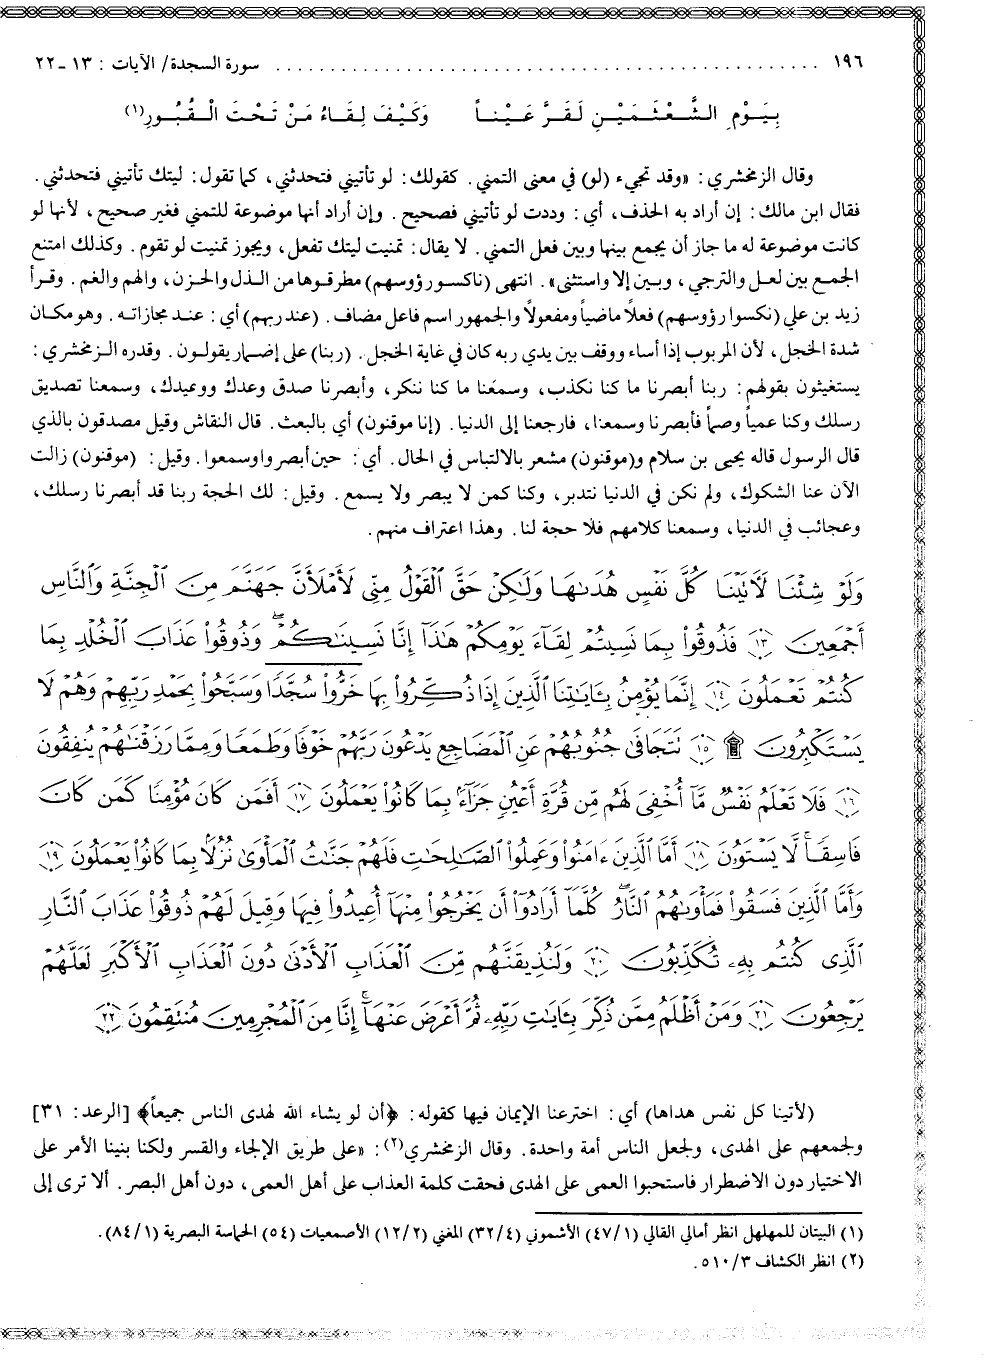 ١٩٦ ........................................ سورة السجدة/ الآيات : ١٣ ـ ٢٢
بِيَوْمِ الشَّعْثَمَيْنِ لَقَرَّ عَيْناً وَكَيْفَ لِقَاءُ مَنْ تَحْتَ الْقُبُورِ(١)
وقال الزمخشري : «وقد تجيء (لو) في معنى التمني . كقولك : لو تأتيني فتحدثني، كما تقول : ليتك تأتيني فتحدثني .
فقال ابن مالك : إن أراد به الحذف، أي : وددت لو تأتيني فصحيح . وإن أراد أنها موضوعة للتمني فغير صحيح، لأنها لو
كانت موضوعة له ما جاز أن يجمع بينها وبين فعل التمني . لا يقال : تمنيت ليتك تفعل، ويجوز تمنيت لو تقوم . وكذلك امتنع
الجمع بين لعل والترجي، وبين إلا واستثنى» . انتهى (ناكسو رؤوسهم) مطرقوها من الذل والحزن، والهم والغم . وقرأ
زيد بن علي (نكسوا رؤوسهم) فعلاً ماضياً ومفعولاً والجمهور اسم فاعل مضاف . (عند ربهم) أي : عند مجازاته . وهو مكان
شدة الخجل، لأن المربوب إذا أساء ووقف بين يدي ربه كان في غاية الخجل . (ربنا) على إضمار يقولون . وقدره الزمخشري :
يستغيثون بقولهم : ربنا أبصرنا ما كنا نكذب، وسمعنا ما كنا ننكر، وأبصرنا صدق وعدك ووعيدك، وسمعنا تصديق
رسلك وكنا عمياً وصماً فأبصرنا وسمعنا، فارجعنا إلى الدنيا . (إنا موقنون) أي بالبعث . قال النقاش وقيل مصدقون بالذي
قال الرسول قاله يحيى بن سلام و(موقنون) مشعر بالالتباس في الحال . أي : حين أبصروا وسمعوا . وقيل : (موقنون) زالت
الآن عنا الشكوك، ولم نكن في الدنيا نتدبر، وكنا كمن لا يبصر ولا يسمع . وقيل : لك الحجة ربنا قد أبصرنا رسلك،
وعجائب في الدنيا، وسمعنا كلامهم فلا حجة لنا . وهذا اعتراف منهم .
وَلَوْ شِئْنَا لَآتَيْنَا كُلَّ نَفْسٍ هُدَىٰهَا وَلَٰكِنْ حَقَّ ٱلْقَوْلُ مِنِّي لَأَمْلَأَنَّ جَهَنَّمَ مِنَ ٱلْجِنَّةِ وَٱلنَّاسِ
أَجْمَعِينَ ١٣ فَذُوقُوا۟ بِمَا نَسِيتُمْ لِقَآءَ يَوْمِكُمْ هَٰذَآ إِنَّا نَسِينَٰكُمْ ۖ وَذُوقُوا۟ عَذَابَ ٱلْخُلْدِ بِمَا
كُنتُمْ تَعْمَلُونَ ١٤ إِنَّمَا يُؤْمِنُ بِـَٔايَٰتِنَا ٱلَّذِينَ إِذَا ذُكِّرُوا۟ بِهَا خَرُّوا۟ سُجَّدًا وَسَبَّحُوا۟ بِحَمْدِ رَبِّهِمْ وَهُمْ لَا
يَسْتَكْبِرُونَ ۩ ١٥ تَتَجَافَىٰ جُنُوبُهُمْ عَنِ ٱلْمَضَاجِعِ يَدْعُونَ رَبَّهُمْ خَوْفًا وَطَمَعًا وَمِمَّا رَزَقْنَٰهُمْ يُنفِقُونَ
١٦ فَلَا تَعْلَمُ نَفْسٌ مَّآ أُخْفِىَ لَهُم مِّن قُرَّةِ أَعْيُنٍ جَزَآءًۢ بِمَا كَانُوا۟ يَعْمَلُونَ ١٧ أَفَمَن كَانَ مُؤْمِنًا كَمَن كَانَ
فَاسِقًا ۚ لَّا يَسْتَوُۥنَ ١٨ أَمَّا ٱلَّذِينَ ءَامَنُوا۟ وَعَمِلُوا۟ ٱلصَّٰلِحَٰتِ فَلَهُمْ جَنَّٰتُ ٱلْمَأْوَىٰ نُزُلًۢا بِمَا كَانُوا۟ يَعْمَلُونَ ١٩
وَأَمَّا ٱلَّذِينَ فَسَقُوا۟ فَمَأْوَىٰهُمُ ٱلنَّارُ ۖ كُلَّمَآ أَرَادُوٓا۟ أَن يَخْرُجُوا۟ مِنْهَآ أُعِيدُوا۟ فِيهَا وَقِيلَ لَهُمْ ذُوقُوا۟ عَذَابَ ٱلنَّارِ
ٱلَّذِى كُنتُم بِهِۦ تُكَذِّبُونَ ٢٠ وَلَنُذِيقَنَّهُم مِّنَ ٱلْعَذَابِ ٱلْأَدْنَىٰ دُونَ ٱلْعَذَابِ ٱلْأَكْبَرِ لَعَلَّهُمْ
يَرْجِعُونَ ٢١ وَمَنْ أَظْلَمُ مِمَّن ذُكِّرَ بِـَٔايَٰتِ رَبِّهِۦ ثُمَّ أَعْرَضَ عَنْهَآ ۚ إِنَّا مِنَ ٱلْمُجْرِمِينَ مُنتَقِمُونَ ٢٢
(لأتينا كل نفس هداها) أي : اخترعنا الإيمان فيها كقوله : ﴿أن لو يشاء الله لهدى الناس جميعاً﴾ [الرعد : ٣١]
ولجمعهم على الهدى، ولجعل الناس أمة واحدة . وقال الزمخشري(٢) : «على طريق الإلجاء والقسر ولكنا بنينا الأمر على
الاختيار دون الاضطرار فاستحبوا العمى على الهدى فحقت كلمة العذاب على أهل العمى، دون أهل البصر . ألا ترى إلى
(١) البيتان للمهلهل انظر أمالي القالي (٤٧/١) الأشموني (٣٢/٤) المغني (١٢/٢) الأصمعيات (٥٤) الحماسة البصرية (٨٤/١).
(٢) انظر الكشاف ٥١٠/٣ .